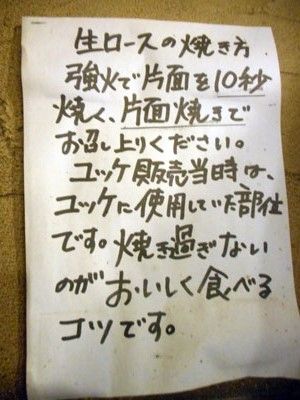 生ロースの焼き方
強火で片面を10秒
焼く、片面焼きで
お召し上りください。
ユッケ販売当時は、
ユッケに使用していた部位
です。焼き過ぎない
のがおいしく食べる
コツです。